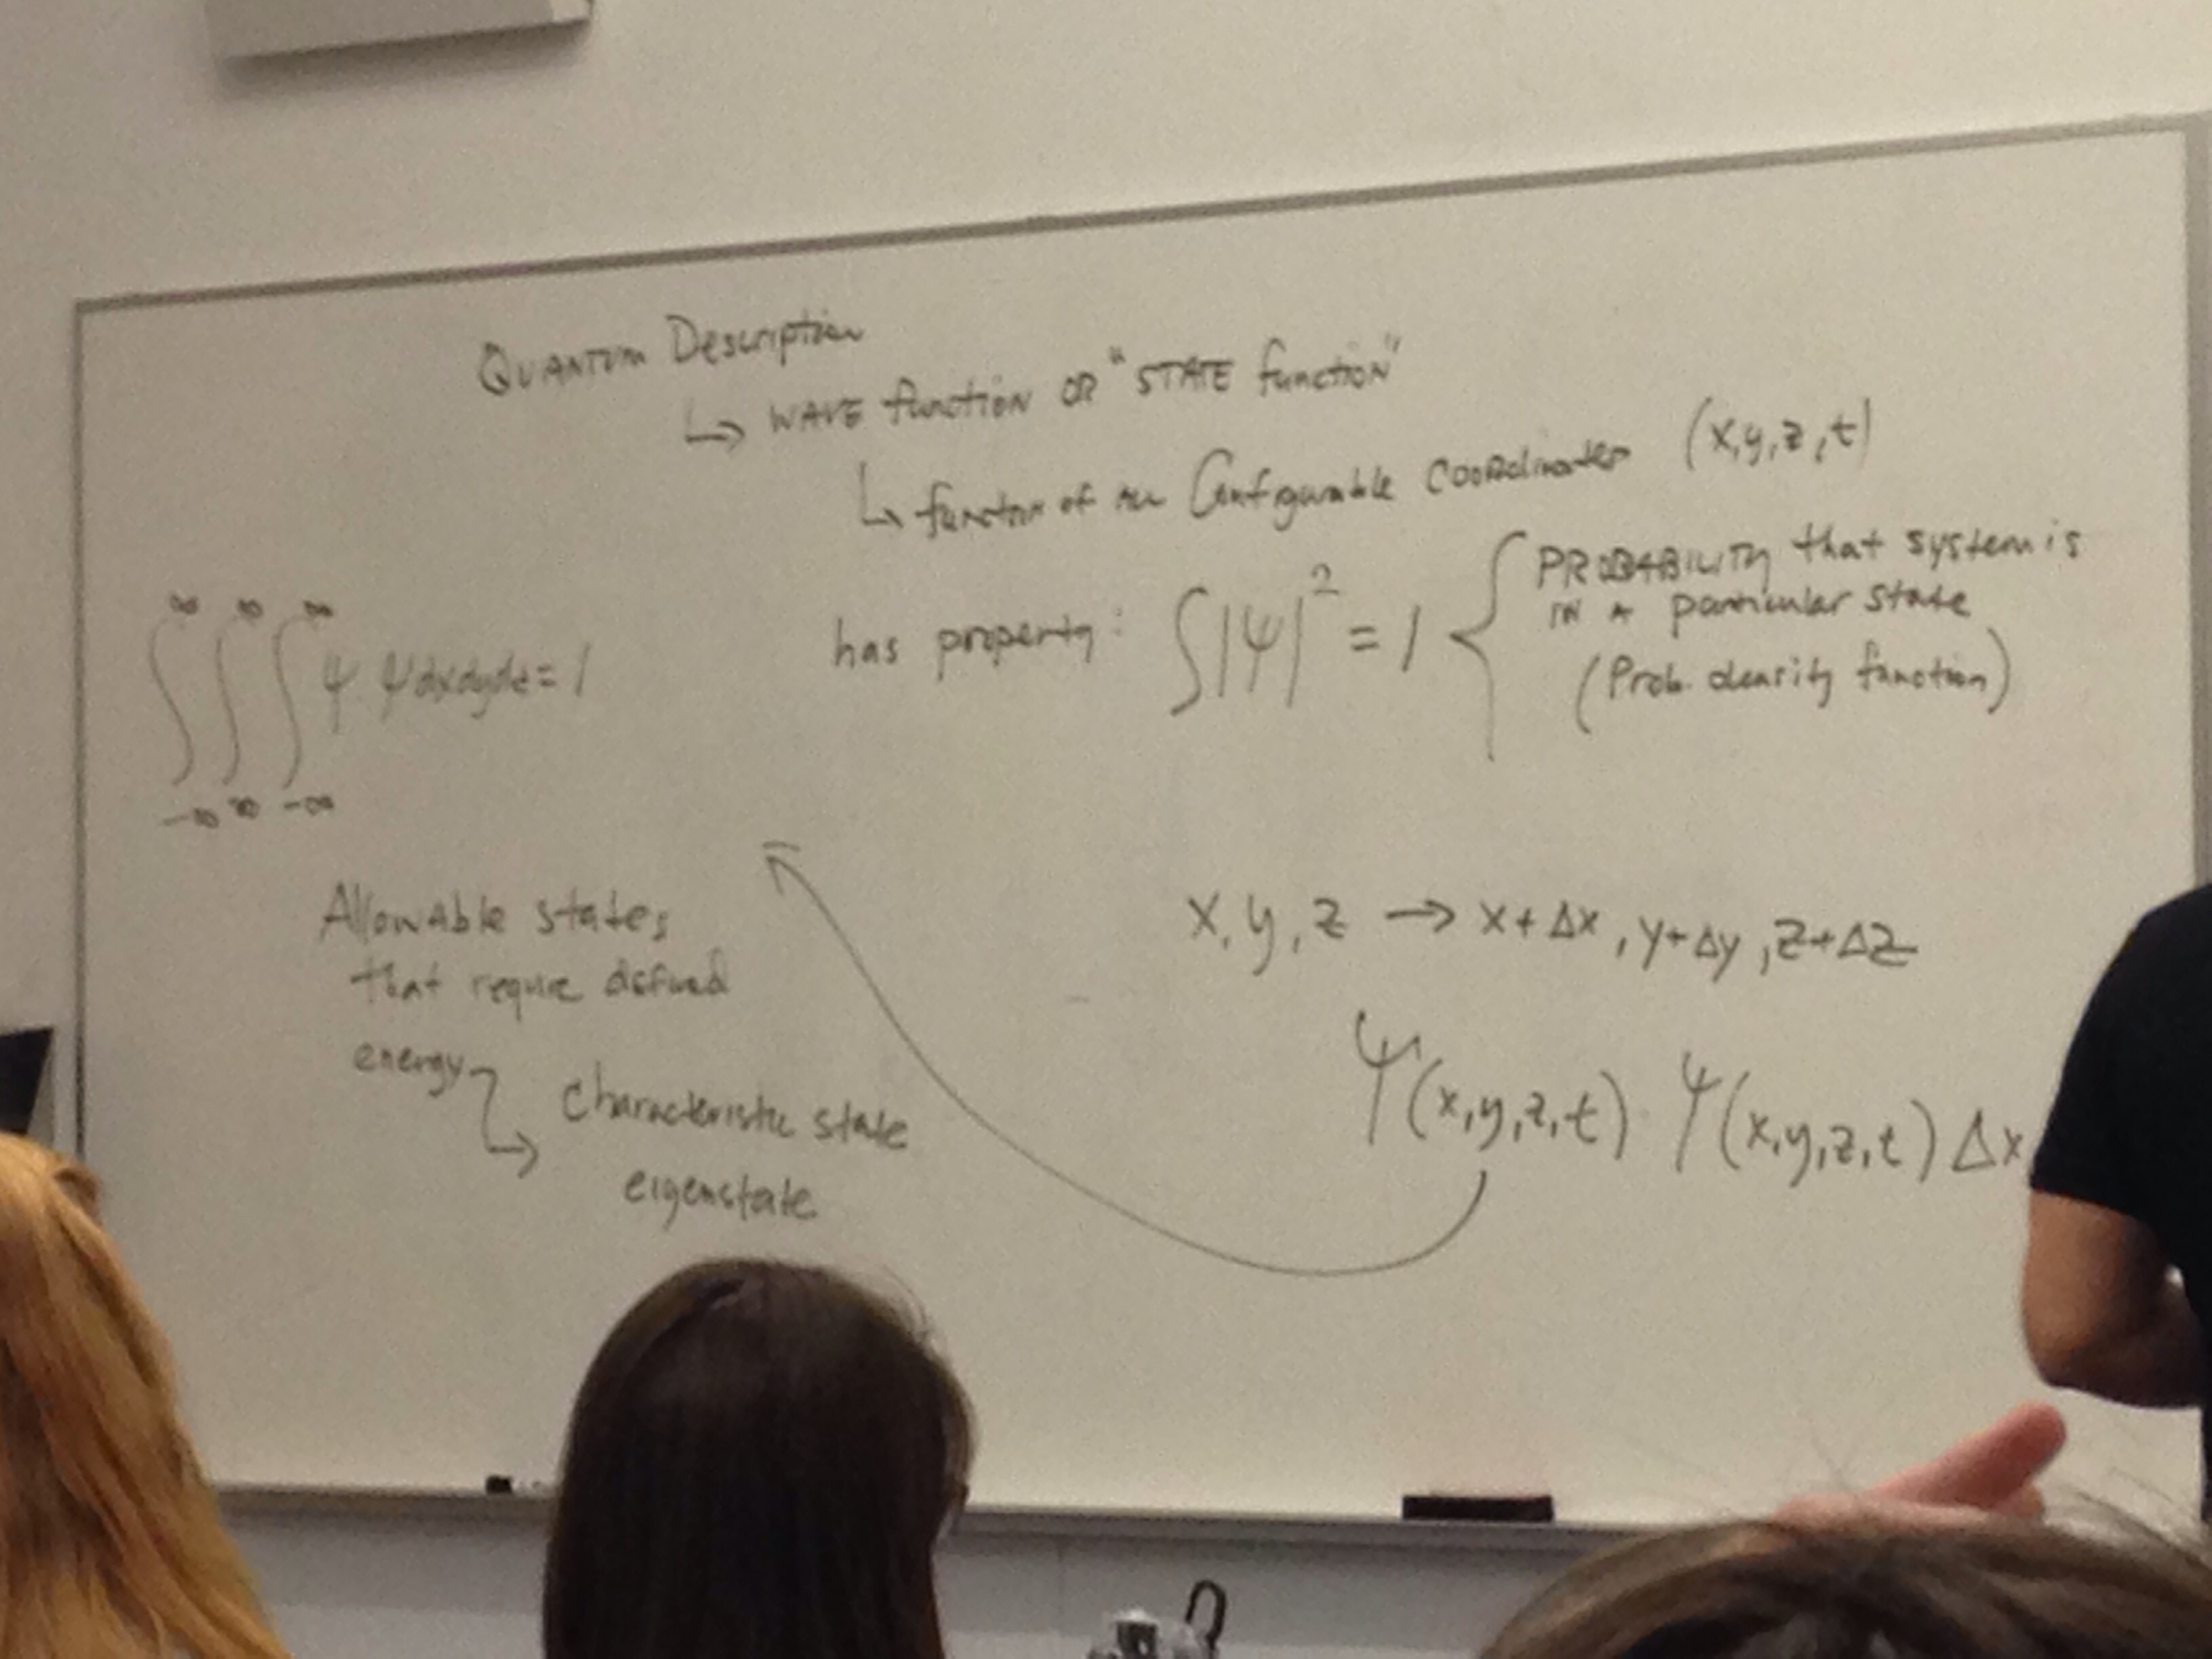 QUANTUM Description
↳ WAVE function OR "STATE function"
↳ function of all Configurable Coordinates (x,y,z,t)
has property: ∫|ψ|² = 1 { PROBABILITY that system is
IN A particular state
(Prob. density function)
∞ ∞ ∞
∫∫∫ ψ ψ dxdydz = 1
-∞ ∞ -∞
Allowable states
that require defined
energy
↳ characteristic state
eigenstate
x, y, z → x+Δx, y+Δy, z+Δz
Ψ(x,y,z,t) Ψ(x,y,z,t) Δx